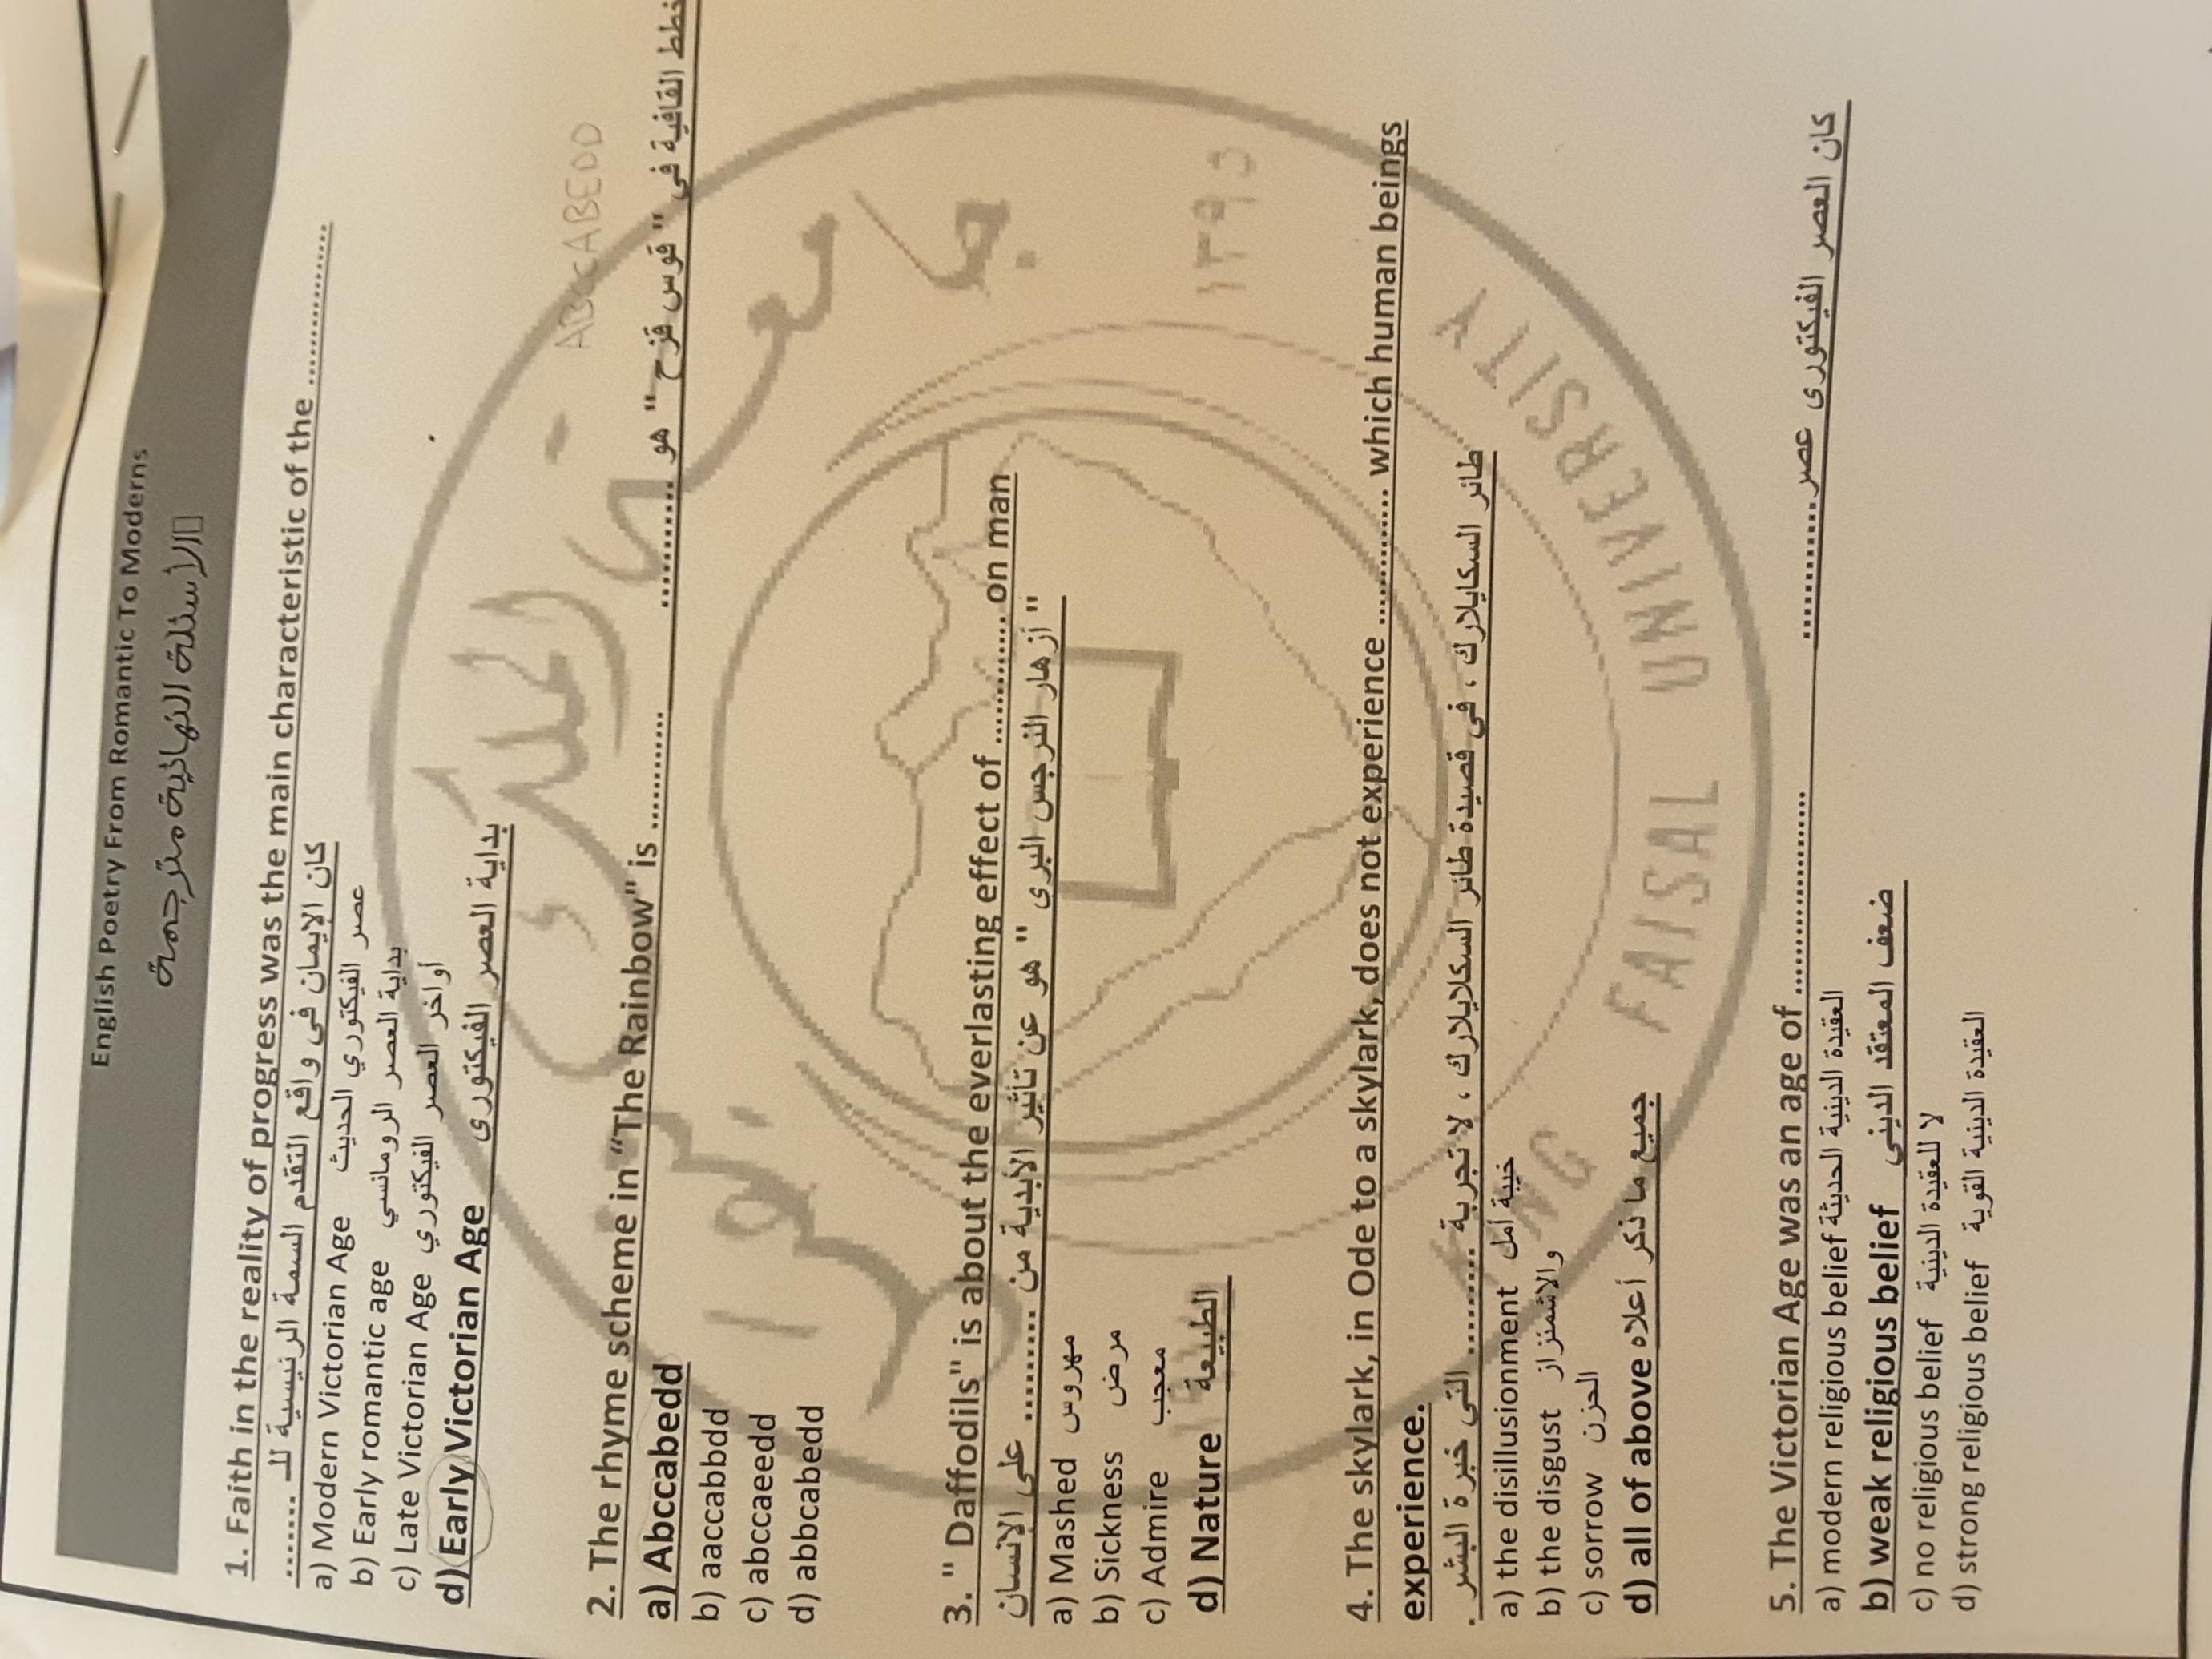 English Poetry From Romantic To Moderns
الاسئلة النهائية مترجمة
1. Faith in the reality of progress was the main characteristic of the ................
كان الإيمان في واقع التقدم السمة الرئيسية للـ ........
a) Modern Victorian Age عصر الفيكتوري الحديث
b) Early romantic age بداية العصر الرومانسي
c) Late Victorian Age أواخر العصر الفيكتوري
d) Early Victorian Age بداية العصر الفيكتورى
ABCCABEDD
2. The rhyme scheme in "The Rainbow" is ............ خطط القافية في " قوس قزح " هو ............
a) Abccabedd
b) aaccabbdd
c) abccaeedd
d) abbcabedd
3. " Daffodils" is about the everlasting effect of ............. on man
" أزهار النرجس البرى " هو عن تأثير الأبدية من ............ على الانسان
a) Mashed مهروس
b) Sickness مرض
c) Admire معجب
d) Nature الطبيعة
4. The skylark, in Ode to a skylark, does not experience ............. which human beings
experience.
طائر السكايلارك ، في قصيدة طائر السكلايلارك ، لا تجربة ............ التي خبرة البشر .
a) the disillusionment خيبة أمل
b) the disgust والاشمئزاز
c) sorrow الحزن
d) all of above جميع ما ذكر أعلاه
5. The Victorian Age was an age of .................... كان العصر الفيكتورى عصر .............
a) modern religious belief العقيدة الدينية الحديثة
b) weak religious belief ضعف المعتقد الديني
c) no religious belief لا للعقيدة الدينية
d) strong religious belief العقيدة الدينية القوية
جامعة الملك فيصل
١٣٩٥
KING FAISAL UNIVERSITY